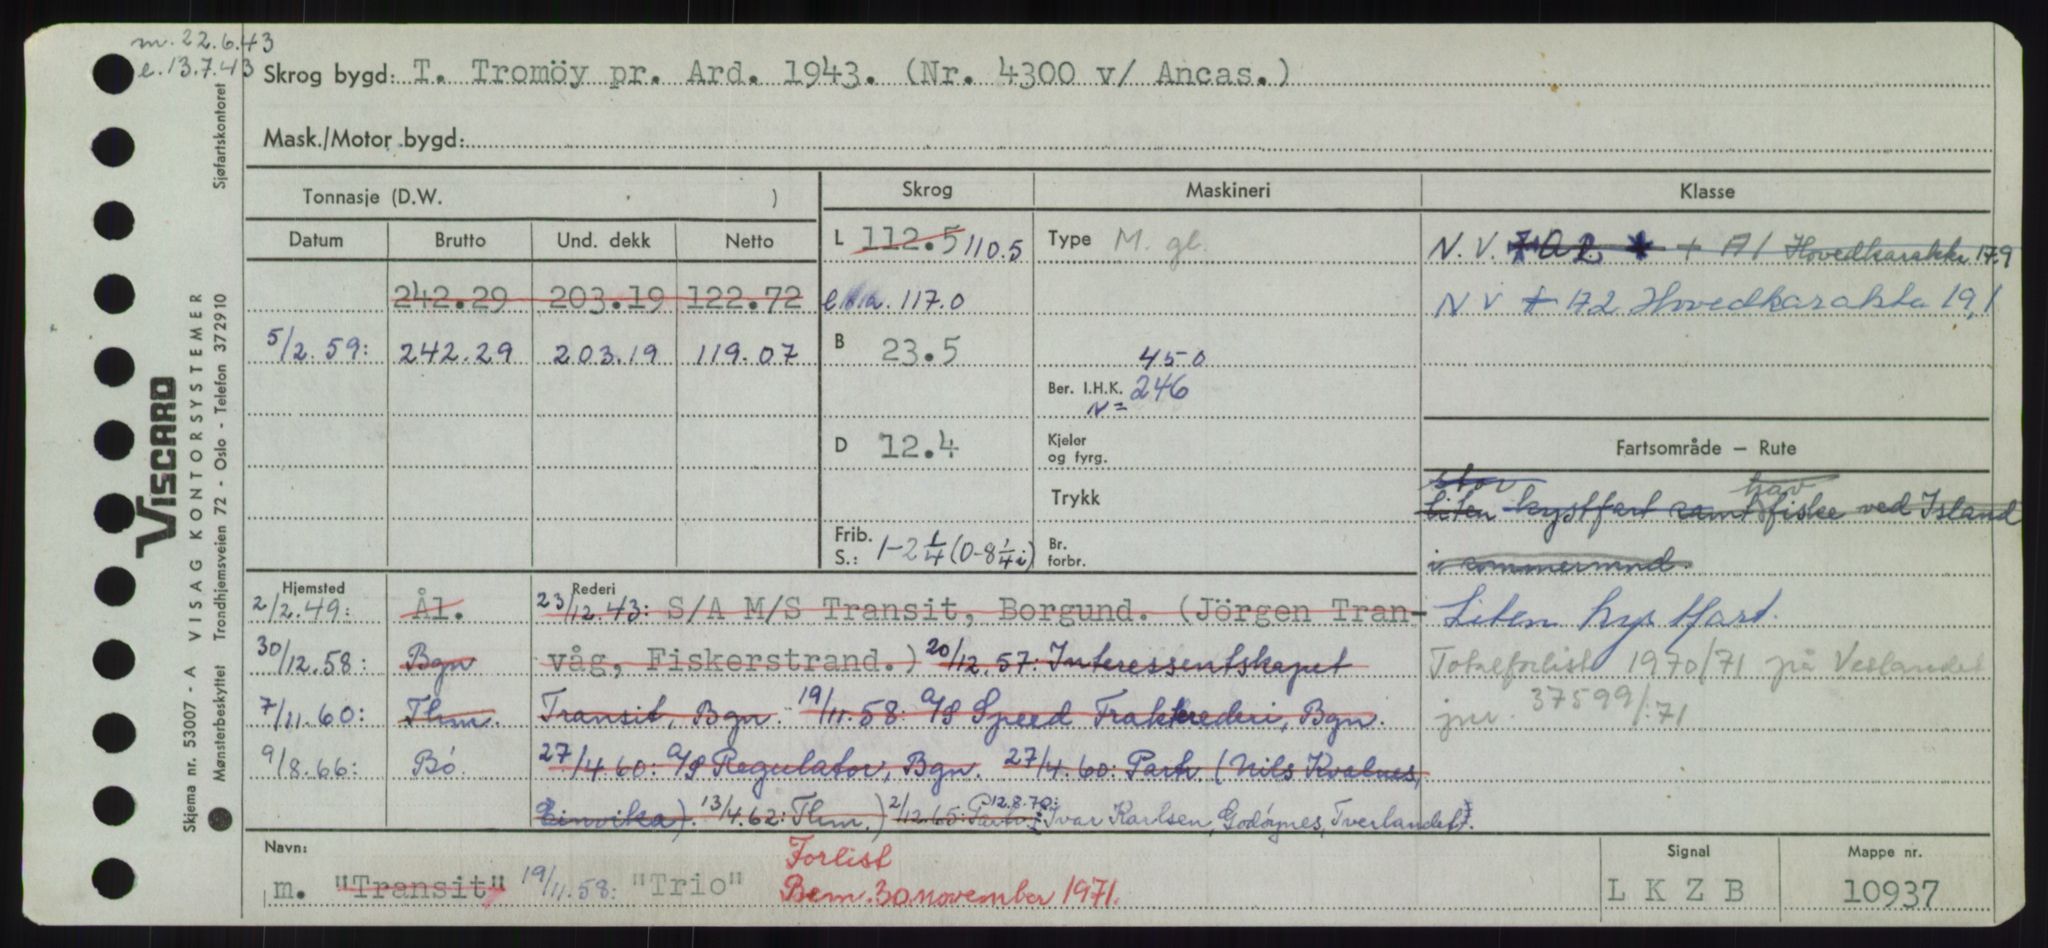 m. 22.6.43
e. 13.7.43
Skrog bygd: T. Tromöy pr. Ard. 1943. (Nr. 4300 v/ Ancas.)
Mask./Motor bygd:
Tonnasje (D.W. )
Datum Brutto Und. dekk Netto
242.29 203.19 122.72
5/2.59: 242.29 203.19 119.07
Skrog
L 112.5 110.5
l.o.a. 117.0
B 23.5
D 12.4
Frib.
S.: 1-2 1/4 (0-8 1/4 i)
Maskineri
Type M. gl.
450
Ber. I.H.K. 246
N=
Kjeler
og fyrg.
Trykk
Br.
forbr.
Klasse
N.V. + A2 * + A1 Hovedkarakter 17.9
N V + A2 Hovedkarakte 19,1
Fartsområde – Rute
stor hav
Liten kystfart samt fiske ved Island
i sommermnd.
Liten kystfart.
Totalforlist 1970/71 på Vestlandet
jnr. 37599/71
Hjemsted Rederi
2/2.49: Ål. 23/12.43: S/A M/S Transit, Borgund. (Jörgen Tran-
30/12.58: Bgn våg, Fiskerstrand.) 20/12.57: Interessentskapet
7/11.60: Thm. Transit, Bgn. 19/11.58: A/S Speed Fraktrederi, Bgn.
9/8.66: Bó. 27/4.60: A/S Regulator, Bgn. 27/4.60: Partr. (Nils Kvalnes,
Einvika). 13/4.62: Thm.) 2/12.65: Partr. 12.8.70: Ivar Karlsen, Godöynes, Tverlandet.
Navn:
m. "Transit" 19/11.58: "Trio"
Forlist
Bem. 30 november 1971.
Signal
L K Z B
Mappe nr.
10937
Sjøfartskontoret
VISCARD
VISAG KONTORSYSTEMER
Trondhjemsveien 72 - Oslo - Telefon 372910
Skjema nr. 53007 - A
Mønsterbeskyttet